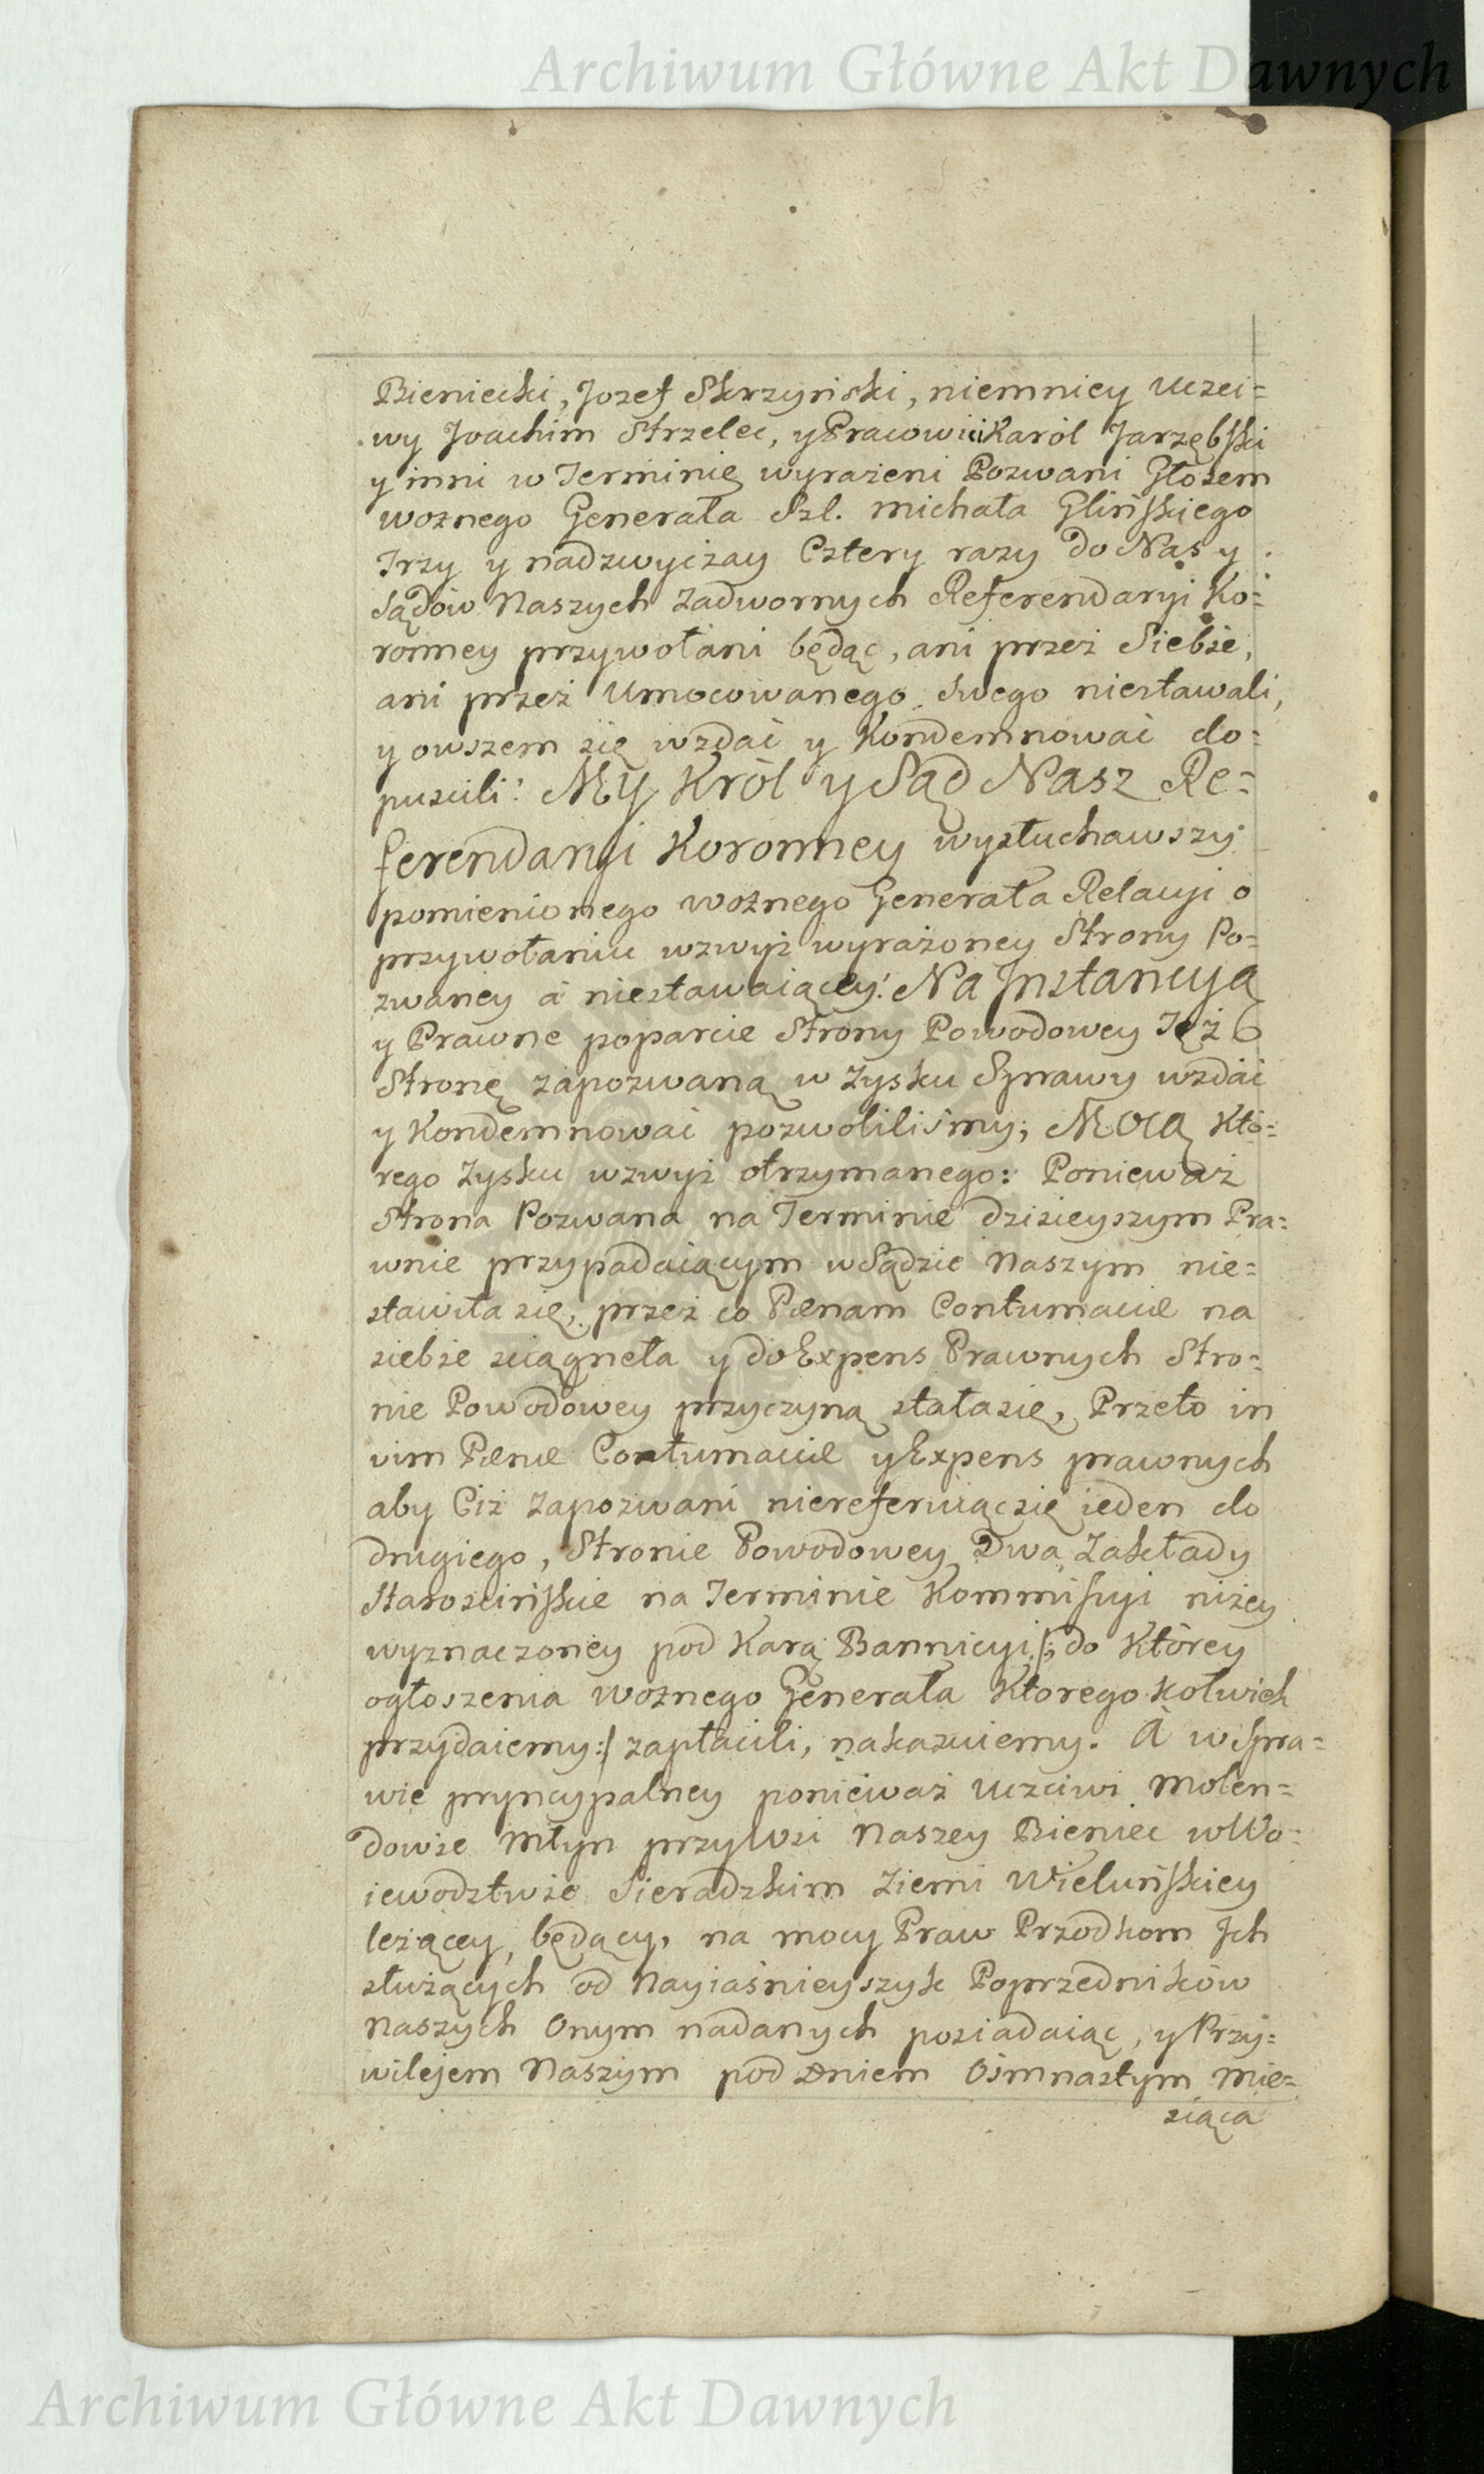 Archiwum Główne Akt Dawnych
Bieniecki, Jozef Skrzyński, niemniey Uczci=
wy Joachim Strzelec, y Pracowici Karól Jarzębski
y inni w Terminie wyrażeni Pozwani Głosem
woznego Generała Szl. Michała Glińskiego
Trzy y nadzwyczay Cztery razy do Nas y
Sądów Naszych Zadwornych Referendaryi Ko=
ronney przywołani będąc, ani przez Siebie,
ani przez Umocowanego swego niestawali,
y owszem się wzdać y Kondemnować do=
puscili: My Król y Sąd Nasz Re=
ferendaryi Koronney wysłuchawszy
pomienionego woznego Generała Relacyi o
przywołaniu wzwyż wyrażoney Strony Po=
zwaney a niestawaiącey: Na Jnstancyą
y Prawne poparcie Strony Powodowey Tęż
Stronę zapozwaną w Zysku Sprawy wzdać
y Kondemnować pozwoliliśmy; Mocą Któ=
rego Zysku wzwyż otrzymanego: Ponieważ
Strona Pozwana na Terminie dzisieyszym Pra=
wnie przypadaiącym w Sądzie Naszym nie=
stawiła się, przez co Pænam Contumaciæ na
siebie sciągneła y do Expens Prawnych Stro=
nie Powodowey przyczyną stała się, Przeto in
vim Pænæ Contumaciæ y Expens prawnych
aby Ciż Zapozwani niereferuiąc się ieden do
drugiego, Stronie Powodowey Dwa Zakłady
Starościńskie na Terminie Kommissyi niżey
wyznaczoney pod Karą Bannicyi /: do Którey
ogłoszenia woznego Generała Któregokolwiek
przydaiemy :/ zapłacili, nakazuiemy. A w Spra=
wie pryncypalney ponieważ Uczciwi Molen=
dowie Młyn przy Wsi Naszey Bieniec w Wo=
iewodztwie Sieradzkim Ziemi Wieluńskiey
leżącey, będący, na mocy Praw Przodkom Jch
służących od Nayiaśnieyszyk Poprzedników
Naszych Onym nadanych posiadaiąc, y Przy=
wilejem Naszym pod Dniem Ośmnastym Mie=
siąca
Archiwum Główne Akt Dawnych